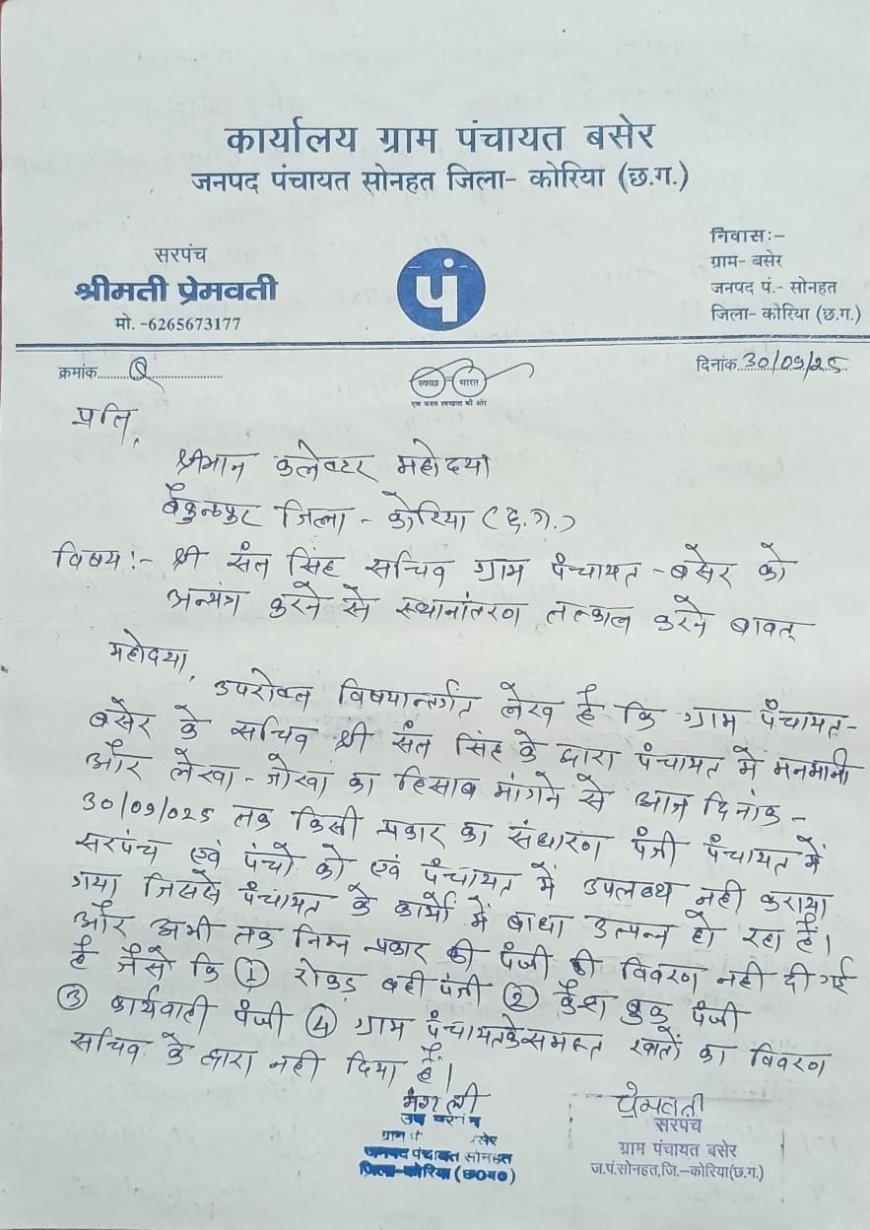 कार्यालय ग्राम पंचायत बसेर
जनपद पंचायत सोनहत जिला- कोरिया (छ.ग.)
सरपंच
श्रीमती प्रेमवती
मो. -6265673177
पं
निवास:-
ग्राम- बसेर
जनपद पं.- सोनहत
जिला- कोरिया (छ.ग.)
क्रमांक
स्वच्छ भारत
एक कदम स्वच्छता की ओर
दिनांक 30/09/25
प्रति,
श्रीमान कलेक्टर महोदया
बैकुन्ठपुर जिला - कोरिया (छ.ग.)
विषय :- श्री संत सिंह सचिव ग्राम पंचायत - बसेर को
अन्यंत्र करने से स्थानांतरण तत्काल करने बावत्
महोदया,
उपरोक्त विषयान्तर्गत लेख है कि ग्राम पंचायत-
बसेर के सचिव श्री संत सिंह के द्वारा पंचायत में मनमानी
और लेखा-जोखा का हिसाब मांगने से आज दिनांक -
30/09/025 तक किसी प्रकार का संधारण पंजी पंचायत में
सरपंच एवं पंचो को एवं पंचायत में उपलब्ध नही कराया
गया जिससे पंचायत के कार्यो में बाधा उत्पन्न हो रहा है।
और अभी तक निम्न प्रकार की पंजी की विवरण नही दी गई
है जैसे कि ① रोकड़ बही पंजी ② कैश बुक पंजी
③ कार्यवाही पंजी ④ ग्राम पंचायत के समस्त खातों का विवरण
सचिव के द्वारा नही दिया है।
मंगली
उप सरपंच
ग्राम पं बसेर
जनपद पंचायत सोनहत
जिला-कोरिया (छ०ग०)
प्रेमवती
सरपंच
ग्राम पंचायत बसेर
ज.पं.सोनहत,जि.-कोरिया(छ.ग.)